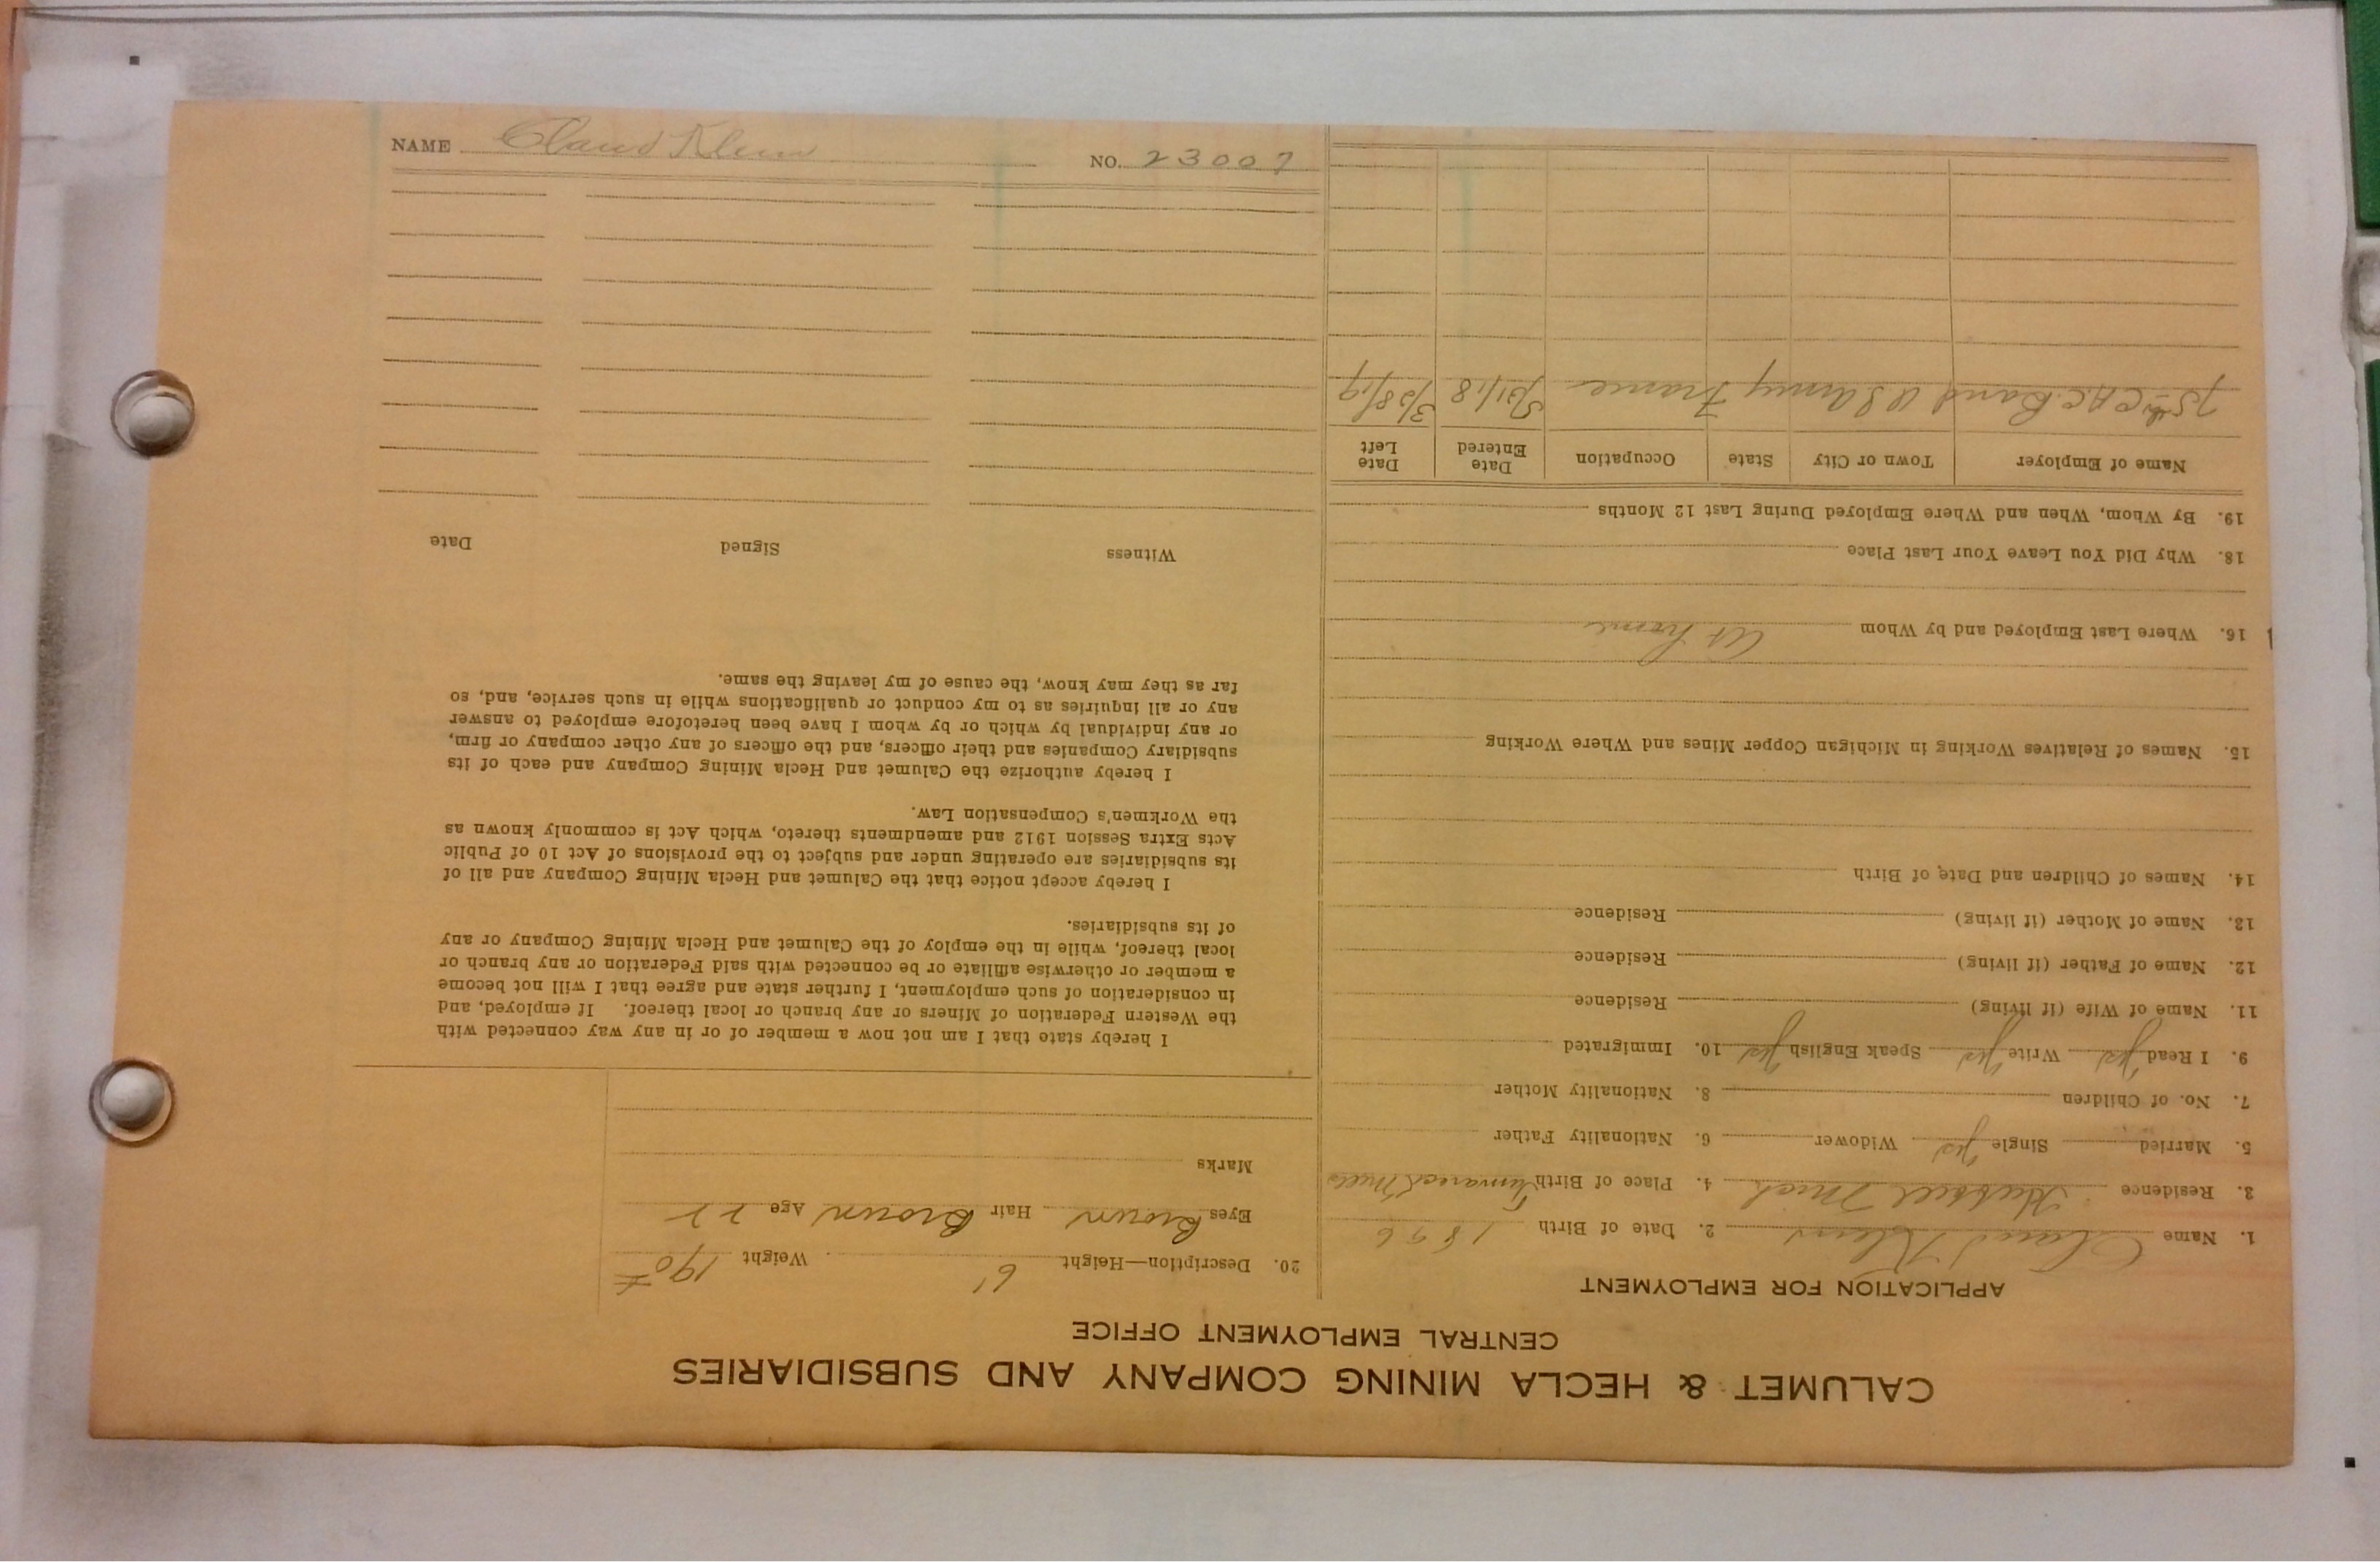 CALUMET & HECLA MINING COMPANY AND SUBSIDIARIES
CENTRAL EMPLOYMENT OFFICE
APPLICATION FOR EMPLOYMENT
1. Name Claud Klein 2. Date of Birth 1896
3. Residence Hubbell Mich 4. Place of Birth
5. Married Single yes Widower 6. Nationality Father
7. No. of Children 8. Nationality Mother
9. I Read yes Write yes Speak English yes 10. Immigrated
11. Name of Wife (if living) Residence
12. Name of Father (if living) Residence
13. Name of Mother (if living) Residence
14. Names of Children and Date of Birth
15. Names of Relatives Working in Michigan Copper Mines and Where Working
16. Where Last Employed and by Whom At home
18. Why Did You Leave Your Last Place
19. By Whom, When and Where Employed During Last 12 Months
Name of Employer Town or City State Occupation Date Entered Date Left
75th C.A.C. Band U S Army France 5/31/18 3/28/19
20. Description—Height 6' Weight 190 #
Eyes Brown Hair Brown Age 22
Marks
I hereby state that I am not now a member of or in any way connected with
the Western Federation of Miners or any branch or local thereof. If employed, and
in consideration of such employment, I further state and agree that I will not become
a member or otherwise affiliate or be connected with said Federation or any branch or
local thereof, while in the employ of the Calumet and Hecla Mining Company or any
of its subsidiaries.
I hereby accept notice that the Calumet and Hecla Mining Company and all of
its subsidiaries are operating under and subject to the provisions of Act 10 of Public
Acts Extra Session 1912 and amendments thereto, which Act is commonly known as
the Workmen's Compensation Law.
I hereby authorize the Calumet and Hecla Mining Company and each of its
subsidiary Companies and their officers, and the officers of any other company or firm,
or any individual by which or by whom I have been heretofore employed to answer
any or all inquiries as to my conduct or qualifications while in such service, and, so
far as they may know, the cause of my leaving the same.
Witness Signed Date
NAME Claud Klein NO. 23007